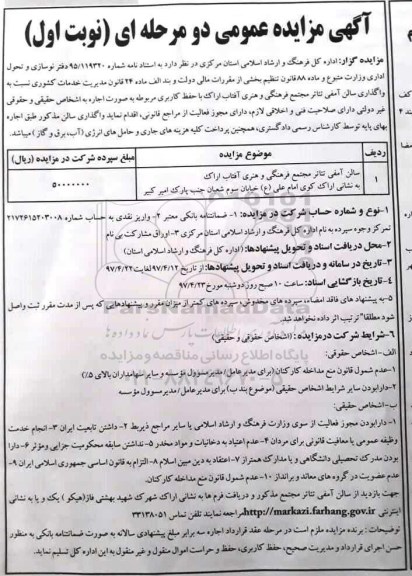 آگهی مزایده عمومی دو مرحله ای (نوبت اول)
مزایده گزار: اداره کل فرهنگ و ارشاد اسلامی استان مرکزی در نظر دارد به استناد نامه شماره ۹۵/۱۱۹۳۲۰ دفتر نوسازی و تحول
اداری وزارت متبوع و ماده ۸۸ قانون تنظیم بخشی از مقررات مالی دولت و بند الف ماده ۲۴ قانون مدیریت خدمات کشوری نسبت به
واگذاری سالن آمفی تئاتر مجتمع فرهنگی و هنری آفتاب اراک با حفظ کاربری مربوطه به صورت اجاره به اشخاص حقیقی و حقوقی
غیر دولتی دارای صلاحیت فنی و اخلاقی لازم، دارای مجوز فعالیت از مراجع قانونی، اقدام نماید واگذاری سالن مذکور طبق اجاره
بهای پایه توسط کارشناس رسمی دادگستری، همچنین پرداخت کلیه هزینه های جاری و حامل های انرژی (آب، برق و گاز) میباشد.
ردیف موضوع مزایده مبلغ سپرده شرکت در مزایده (ریال)
۱ سالن آمفی تئاتر مجتمع فرهنگی و هنری آفتاب اراک
به نشانی اراک کوی امام علی (ع) خیابان سوم شعبان جنب پارک امیر کبیر ۵۰۰۰۰۰۰۰
۱- نوع و شماره حساب شرکت در مزایده: ۱- ضمانتنامه بانکی معتبر ۲- واریز نقدی به حساب شماره ۲۱۷۲۴۶۱۵۲۰۳۰۰۸
تمرکز وجوه سپرده به نام اداره کل فرهنگ و ارشاد اسلامی استان مرکزی ۳- اوراق مشارکت بی نام
۲- محل دریافت اسناد و تحویل پیشنهادها: (اداره کل فرهنگ و ارشاد اسلامی استان)
۳- تاریخ در سامانه و دریافت اسناد و تحویل پیشنهادها: از تاریخ ۹۷/۴/۱۲ لغایت ۹۷/۴/۲۲
۴- تاریخ بازگشایی اسناد: ساعت ۱۰ صبح روز دوشنبه مورخ ۹۷/۴/۲۳
۵- به پیشنهاد های فاقد امضاء، سپرده های مخدوش، سپرده های کمتر از میزان مقرر و پیشنهادهایی که پس از مدت مقرر ثبت واصل
شود مطلقا" ترتیب اثر داده نخواهد شد.
۶- شرایط شرکت درمزایده: (اشخاص حقوقی و حقیقی)
الف- اشخاص حقوقی:
۱- عدم شمول قانون منع مداخله کارکنان (برای مدیرعامل/ مدیرمسوول مؤسسه و سایر سهامداران بالای ۵٪)
۲- دارابودن سایر شرایط اشخاص حقیقی (موضوع بند ب) برای مدیرعامل/ مدیرمسوول مؤسسه
ب- اشخاص حقیقی:
۱- دارابودن مجوز فعالیت از سوی وزارت فرهنگ و ارشاد اسلامی یا سایر مراجع ذیربط ۲- داشتن تابعیت ایران ۳- انجام خدمت
وظیفه عمومی یا معافیت قانونی برای مردان ۴- عدم اعتیاد به دخانیات و مواد مخدر ۵- نداشتن سابقه محکومیت جزایی ومؤثر ۶- دارا
بودن مدرک تحصیلی دانشگاهی و یا مدارک همتراز ۷- اعتقاد به دین مبین اسلام ۸- التزام به قانون اساسی جمهوری اسلامی ایران ۹-
عدم عضویت در گروه های معاند و برانداز ۱۰- عدم شمول قانون منع مداخله کارکنان.
جهت بازدید از سالن آمفی تئاتر مجتمع مذکور و دریافت فرم ها به نشانی اراک شهرک شهید بهشتی فاز (هپکو) یک و یا به نشانی
اینترنتی http://markazi.farhang.gov.ir مراجعه نمایند تلفن تماس ۳۳۱۳۸۰۵۱
توضیحات: برنده مزایده ملزم است در مرحله عقد قرارداد اجاره سه برابر مبلغ پیشنهادی سالانه به صورت ضمانتنامه بانکی به منظور
حسن اجرای قرارداد و مدیریت صحیح، حفظ کاربری، حفظ و حراست اموال منقول و غیر منقول به این اداره کل تسلیم نماید.
پایگاه اطلاع رسانی مناقصه و مزایده